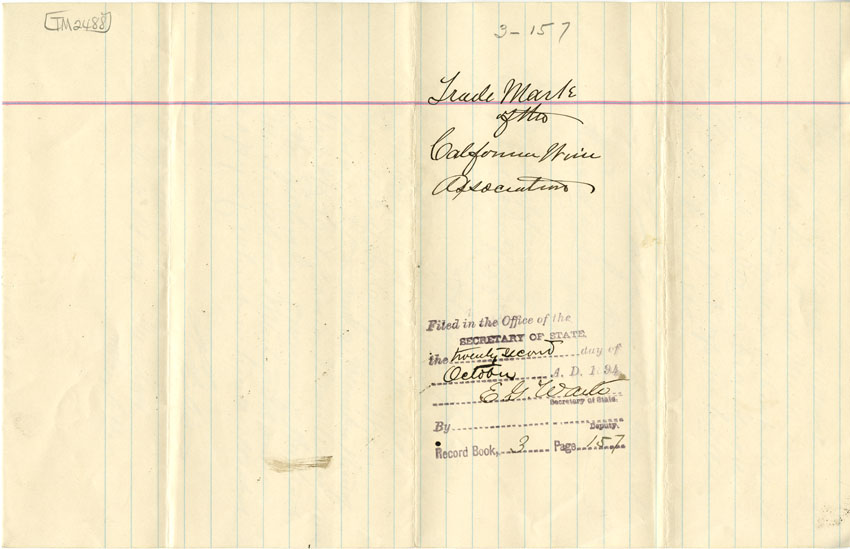 TM2488
3-157
Trade Mark
of the
California Wine
Association
Filed in the Office of the
SECRETARY OF STATE.
the twenty second day of
October A. D. 1 94
E. G. Waite
Secretary of State.
By
Deputy.
Record Book, 3 Page 157